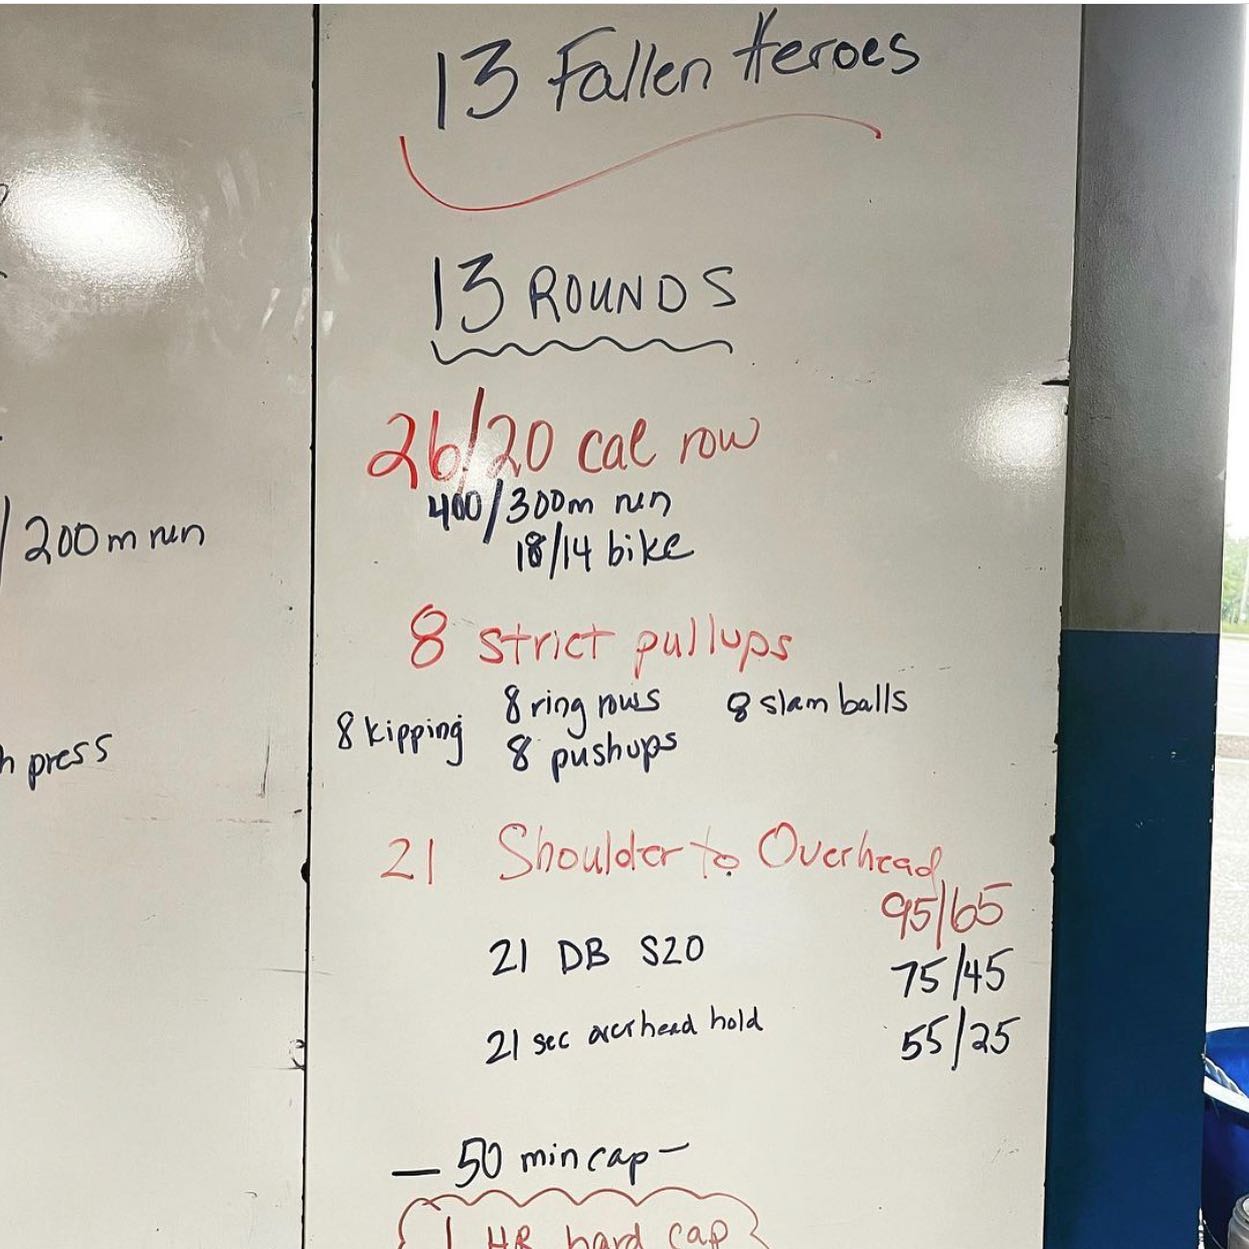 13 Fallen Heroes
13 ROUNDS
26/20 cal row
400/300m run
18/14 bike
8 strict pullups
8 kipping
8 ring rows
8 pushups
8 slam balls
21 Shoulder to Overhead
95/65
21 DB S2O
75/45
21 sec overhead hold
55/25
— 50 min cap —
1 HR hard cap
/200m run
press